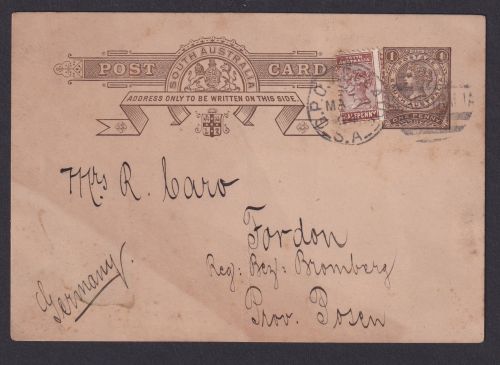 POST CARD
SOUTH AUSTRALIA
ADDRESS ONLY TO BE WRITTEN ON THIS SIDE.
1 1
ONE PENNY
HALFPENNY
G.P.O.
MA
S.A.
Mrs R. Caro
Fordon
Reg: Bez: Bromberg
Prov. Posen
Germany.